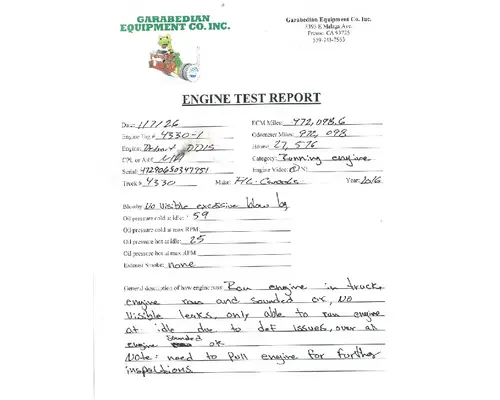 GARABEDIAN
EQUIPMENT CO. INC.
Garabedian Equipment Co. Inc.
E Malaga Ave
Fresno, CA 93725
ENGINE TEST REPORT
Date: 1/7/26
ECM Miles: 972,098.6
Engine Tag # 4330-1
Odometer Miles: 972,098
Engine: Detroit DD15
Hours: 27,576
CPL or Ar#: N/A
Category: Running engine
Serial: 472906S0347951
Engine Video: Y N:
Truck # 4330
Make: F/L Cascadia
Year: 2016
Blowby No Visible excessive blow by
Oil pressure cold at idle: 59
Oil pressure cold at max RPM
Oil pressure hot at idle: 25
Oil pressure hot at max RPM
Exhaust Smoke: none
General description of how engine runs: Ran engine in truck,
engine ran and sounded ok, NO
Visible leaks, only able to run engine
at idle due to def Issues, over all
engine sounded ok
Note: need to Pull engine for further
inspections